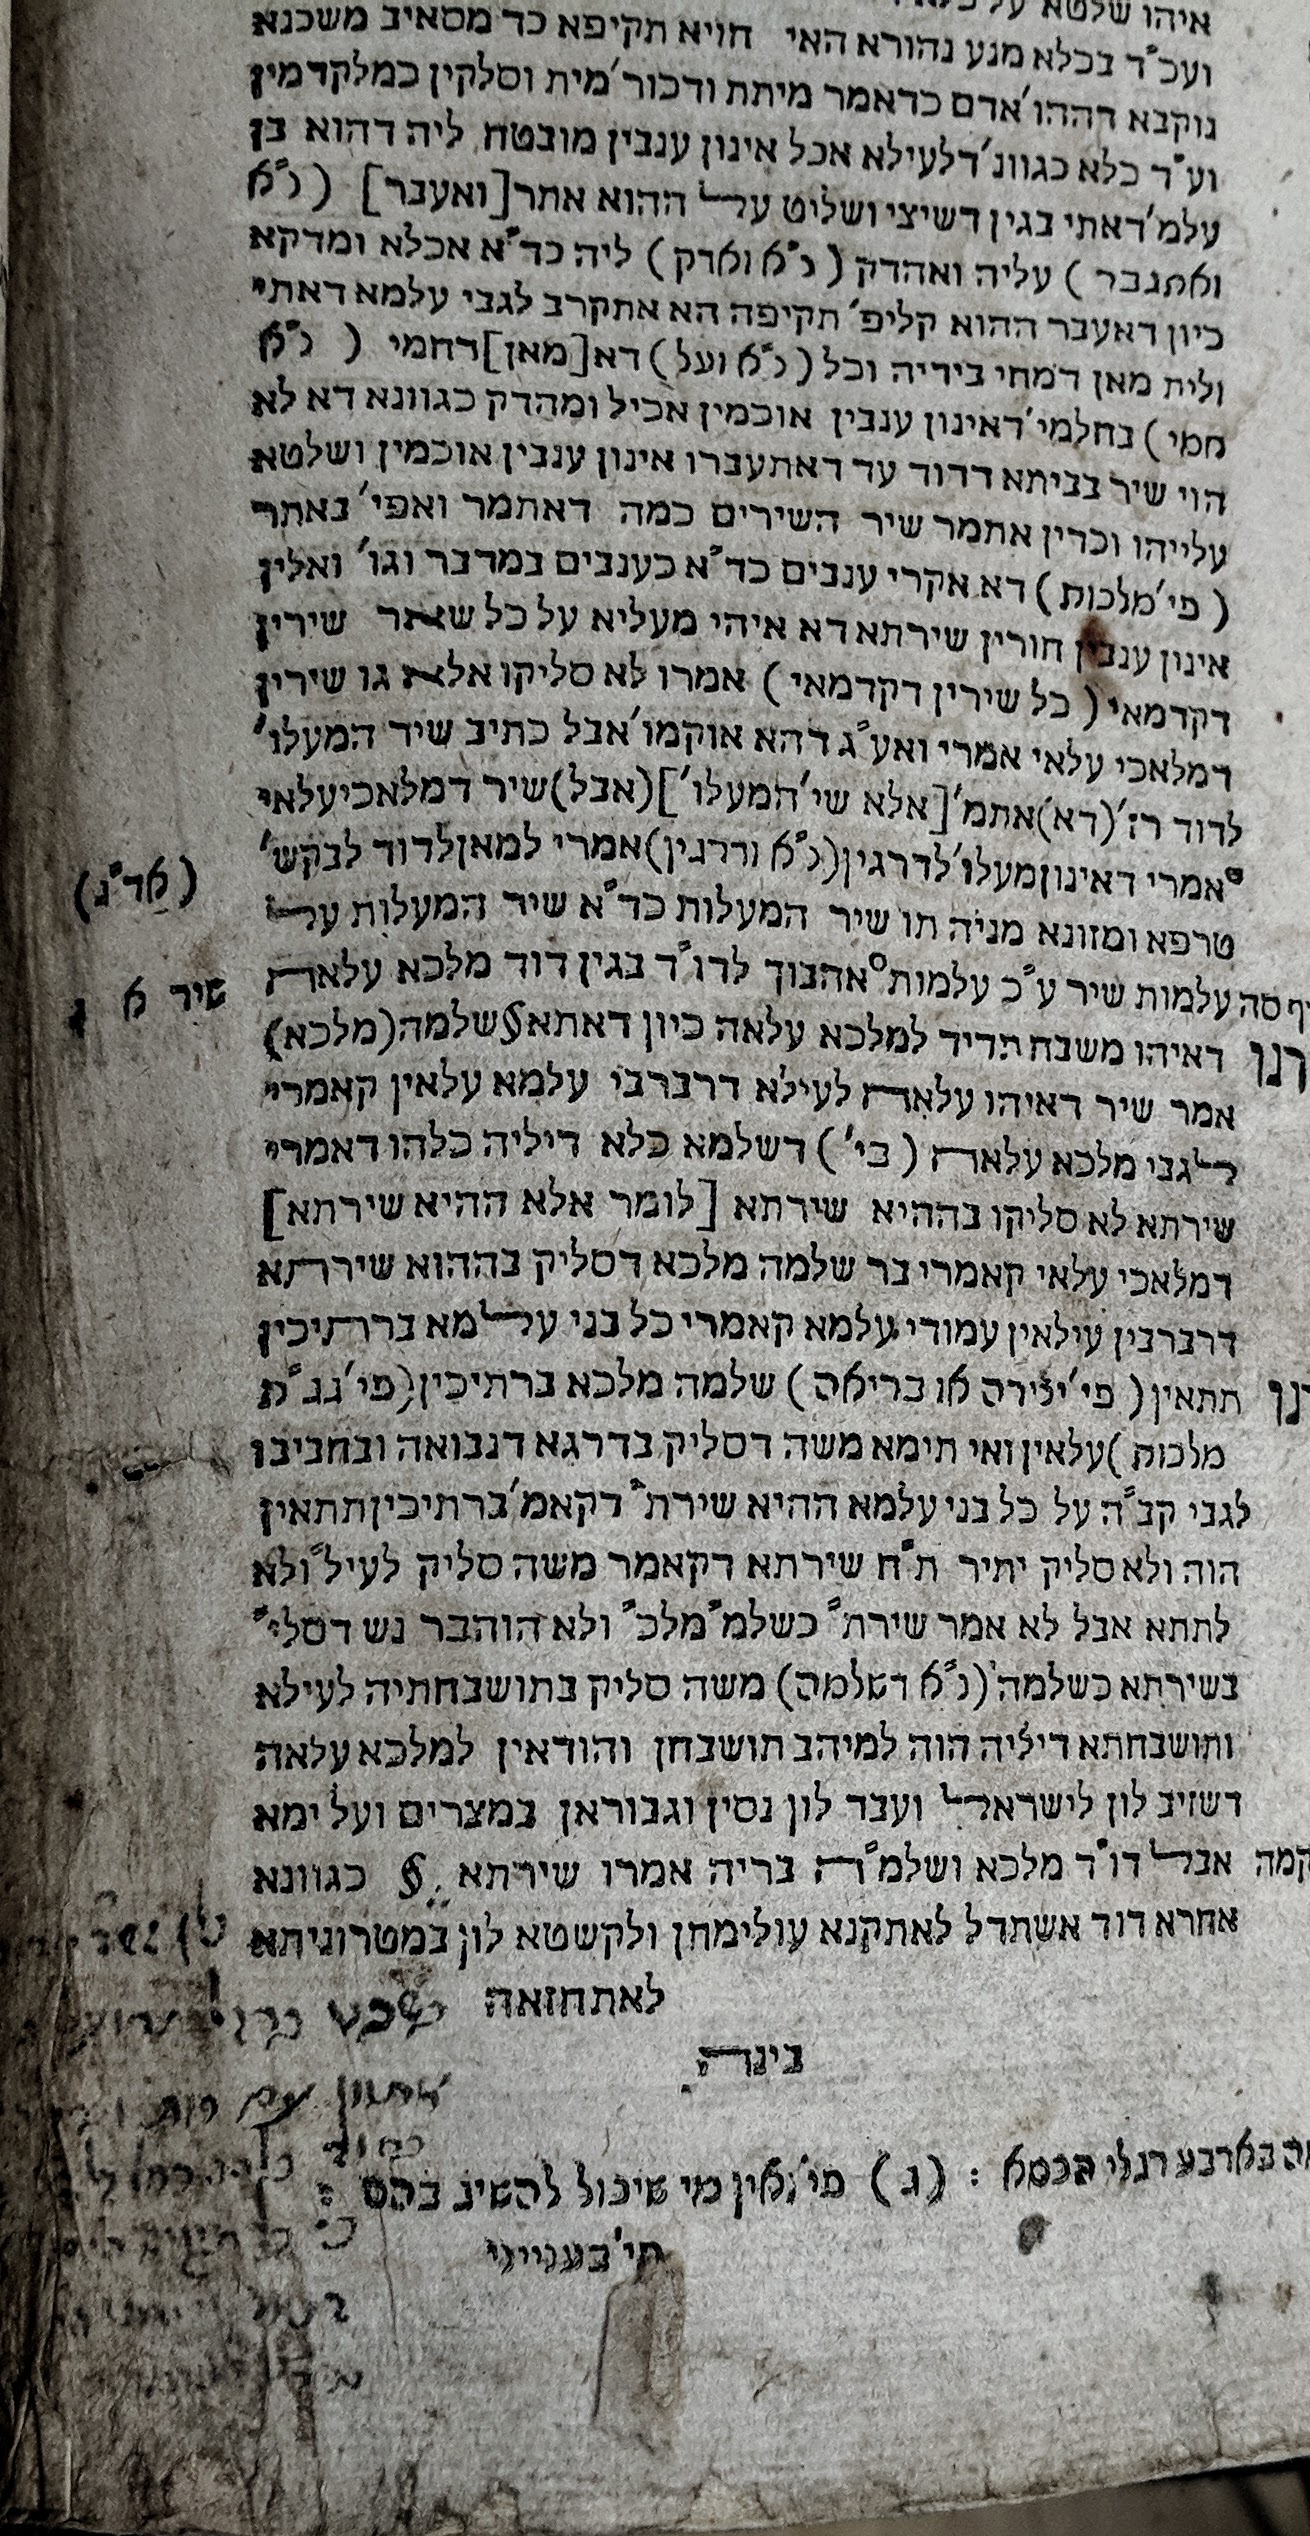 איהו שלטא על
ועכ"ד בכלא מנע נהורא האי חויא תקיפא כד מסאיב משכנא
נוקבא דההו' אדם כדאמר מיתת ודכור' מית וסלקין כמלקדמין
וע"ד כלא כגוונ' דלעילא אכל אינון ענבין מובטח ליה דהוא בן
עלמ' דאתי בגין דשיצי ושליט על ההוא אתר [ואעבר] (נ"א
ואתגבר) עליה ואהדק (נ"א וארק) ליה כד"א אכלא ומדקא
כיון דאעבר ההוא קליפ' תקיפה הא אתקרב לגבי עלמא דאתי
ולית מאן דמחי בידיה וכל (נ"א ועל) דא [מאן] דחמי (נ"א
חמי) בחלמי' דאינון ענבין אוכמין אכיל ומהדק כגוונא דא לא
הוי שיר בביתא דדוד עד דאתעברו אינון ענבין אוכמין ושלטא
עלייהו וכדין אתמר שיר השירים כמה דאתמר ואפי' באתר
(פי' מלכות) דא אקרי ענבים כד"א כענבים במדבר וגו' ואלין
אינון ענבין חורין שירתא דא איהי מעליא על כל שאר שירין
דקדמאי (כל שירין דקדמאי) אמרו לא סליקו אלא גו שירין
דמלאכי עלאי אמרי ואע"ג דהא אוקמו' אבל כתיב שיר המעלו'
לדוד רז' (דא) אתמ' [אלא שי' המעלו'] (אבל) שיר דמלאכי עלאי
°אמרי דאינון מעלו' לדרגין (נ"א ודרגין) אמרי למאן לדוד לבקש'
(אד"ג)
טרפא ומזונא מניה תו שיר המעלות כד"א שיר המעלות על
עלמות שיר ע"כ עלמות °אהבוך לדו"ד בגין דוד מלכא עלאה
שיר א ג
דאיהו משבח תדיד למלכא עלאה כיון דאתא § שלמה (מלכא)
אמר שיר דאיהו עלאה לעילא דרברבי עלמא עלאין קאמרי
לגבי מלכא עלאה (בי') דשלמא כלא דיליה כלהו דאמרי
שירתא לא סליקו בההיא שירתא [לומר אלא ההיא שירתא]
דמלאכי עלאי קאמרי בר שלמה מלכא דסליק בההוא שירתא
דרברבין עילאין עמודי עלמא קאמרי כל בני עלמא ברתיכין
תתאין (פי' יצירה או בריאה) שלמה מלכא ברתיכין (פי' נג"ת
מלכות) עלאין ואי תימא משה דסליק בדרגא דנבואה ובחביבו
לגבי קב"ה על כל בני עלמא ההיא שירת" דקאמ' ברתיכין תתאין
הוה ולא סליק יתיר ת"ח שירתא דקאמר משה סליק לעיל" ולא
לתתא אבל לא אמר שירת" כשלמ" מלכ" ולא הוה בר נש דסלי"
בשירתא כשלמה (נ"א דשלמה) משה סליק בתושבחתיה לעילא
ותושבחתא דיליה הוה למיהב תושבחן והודאין למלכא עלאה
דשזיב לון לישראל ועבד לון נסין וגבוראן במצרים ועל ימא
אבל דו"ד מלכא ושלמ"ה בריה אמרו שירתא § כגוונא
אחרא דוד אשתדל לאתקנא עולימתן ולקשטא לון במטרוניתא
לאתחזאה
בינה
בארבע רגלי הכסא : (ג) פי' אין מי שיכול להשיג בהם :